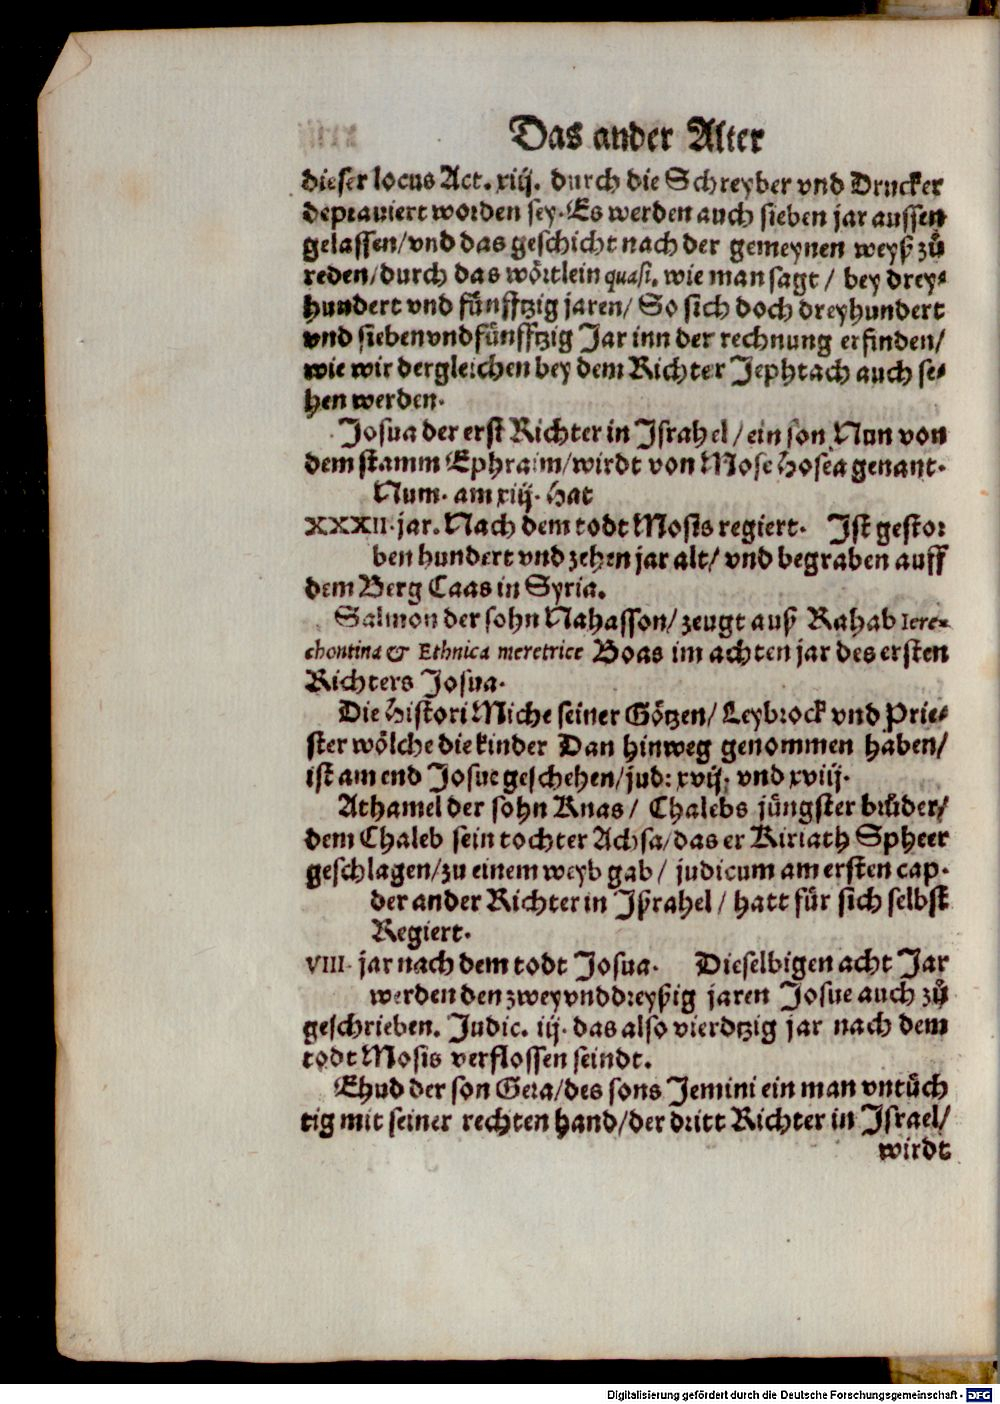 Das ander Alter
dieser locus Act. xiij. durch die Schreyber vnd Drucker
deprauiert worden sey. Es werden auch sieben jar aussen
gelassen/vnd das geschicht nach der gemeynen weyß zů
reden/durch das wörtlein quasi, wie man sagt / bey drey-
hundert vnd fünfftzig jaren/ So sich doch dreyhundert
vnd siebenvndfünfftzig Jar inn der rechnung erfinden/
wie wir dergleichen bey dem Richter Jephtach auch se-
hen werden.
Josua der erst Richter in Israhel / ein son Nun von
dem stamm Ephraim/wirdt von Mose Hosea genant.
Num. am xiij. Hat
XXXII. jar. Nach dem todt Mosis regiert. Ist gestor
ben hundert vnd zehen jar alt/ vnd begraben auff
dem Berg Caas in Syria.
Salmon der sohn Nahasson/ zeugt auß Rahab Iere-
chontina & Ethnica meretrice Boas im achten jar des ersten
Richters Josua.
Die Histori Miche seiner Götzen/ Leybrock vnd Prie-
ster wölche die kinder Dan hinweg genommen haben/
ist am end Josue geschehen/jud: xvij. vnd xviij.
Athamel der sohn Knas/ Chalebs jüngster brůder/
dem Chaleb sein tochter Achsa/das er Kiriath Spheer
geschlagen/zu einem weyb gab / judicum am ersten cap.
der ander Richter in Jßrahel / hatt für sich selbst
Regiert.
VIII. jar nach dem todt Josua. Dieselbigen acht Jar
werden den zweyvnddreyßig jaren Josue auch zů
geschrieben. Judic. iij. das also vierdtzig jar nach dem
todt Mosis verflossen seindt.
Ehud der son Gera/des sons Jemini ein man vntüch
tig mit seiner rechten hand/der dritt Richter in Israel/
wirdt
Digitalisierung gefördert durch die Deutsche Forschungsgemeinschaft - DFG